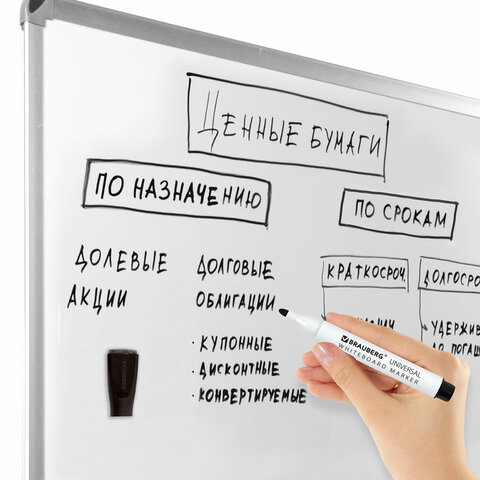 ЦЕННЫЕ БУМАГИ
ПО НАЗНАЧЕНИЮ
ПО СРОКАМ
ДОЛЕВЫЕ
АКЦИИ
ДОЛГОВЫЕ
ОБЛИГАЦИИ
· КУПОННЫЕ
· ДИСКОНТНЫЕ
· КОНВЕРТИРУЕМЫЕ
КРАТКОСРОЧ.
ДОЛГОСРО
УДЕРЖИВ
ДО ПОГАШ
BRAUBERG UNIVERSAL
WHITEBOARD MARKER